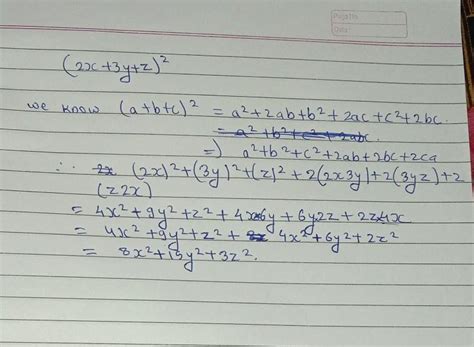 Page No.
Date
(2x+3y+z)²
we know (a+b+c)² = a²+2ab+b²+2ac+c²+2bc.
= a²+b²+c²+2abc
=) a²+b²+c²+2ab+2bc+2ca
∴ 2x (2x)²+(3y)²+(z)²+2(2x3y)+2(3yz)+2
(z2x)
= 4x²+9y²+z²+4x6y+6y2z+2z4x
= 4x²+9y²+z²+8x 4x²+6y²+2z²
= 8x²+15y²+3z².